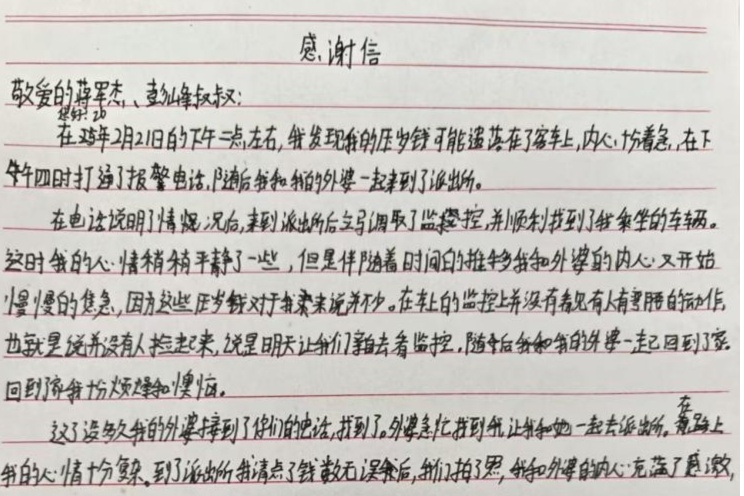 感谢信
敬爱的蒋军杰、彭仙峰叔叔:
您好:20
在25年2月21日的下午二点左右,我发现我的压岁钱可能遗落在了客车上,内心十分着急,在下
午四时打通了报警电话,随后我和我的外婆一起来到了派出所。
在电话说明了情况后,来到派出所后立马调取了监控,并顺利找到了我乘坐的车辆。
这时我的心情稍稍平静了一些,但是伴随着时间的推移我和外婆的内心又开始
慢慢的焦急,因为这些压岁钱对于我来说并不少。在车上的监控上并没有看见有人有弯腰的动作,
也就是说并没有人捡起来,说是明天让我们亲自去看监控,随后我和我的外婆一起回到了家
回到了家我十分烦燥和懊恼。
过了没多久我的外婆接到了你们的电话,找到了。外婆急忙找到我让我和她一起去派出所。在路上
我的心情十分复杂。到了派出所我清点了钱数无误后,我们拍了照,我和外婆的内心充满了感激,